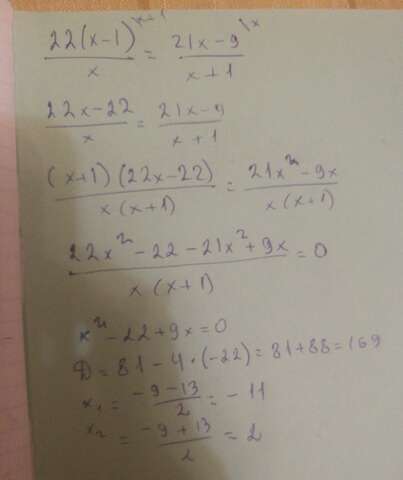 22(x-1)^{\x+1}/x = 21x-9^{\x}/x+1
22x-22/x = 21x-9/x+1
(x+1)(22x-22)/x(x+1) = 21x²-9x/x(x+1)
22x²-22-21x²+9x/x(x+1) = 0
x²-22+9x=0
D=81-4·(-22)=81+88=169
x₁ = -9-13/2 = -11
x₂ = -9+13/2 = 2